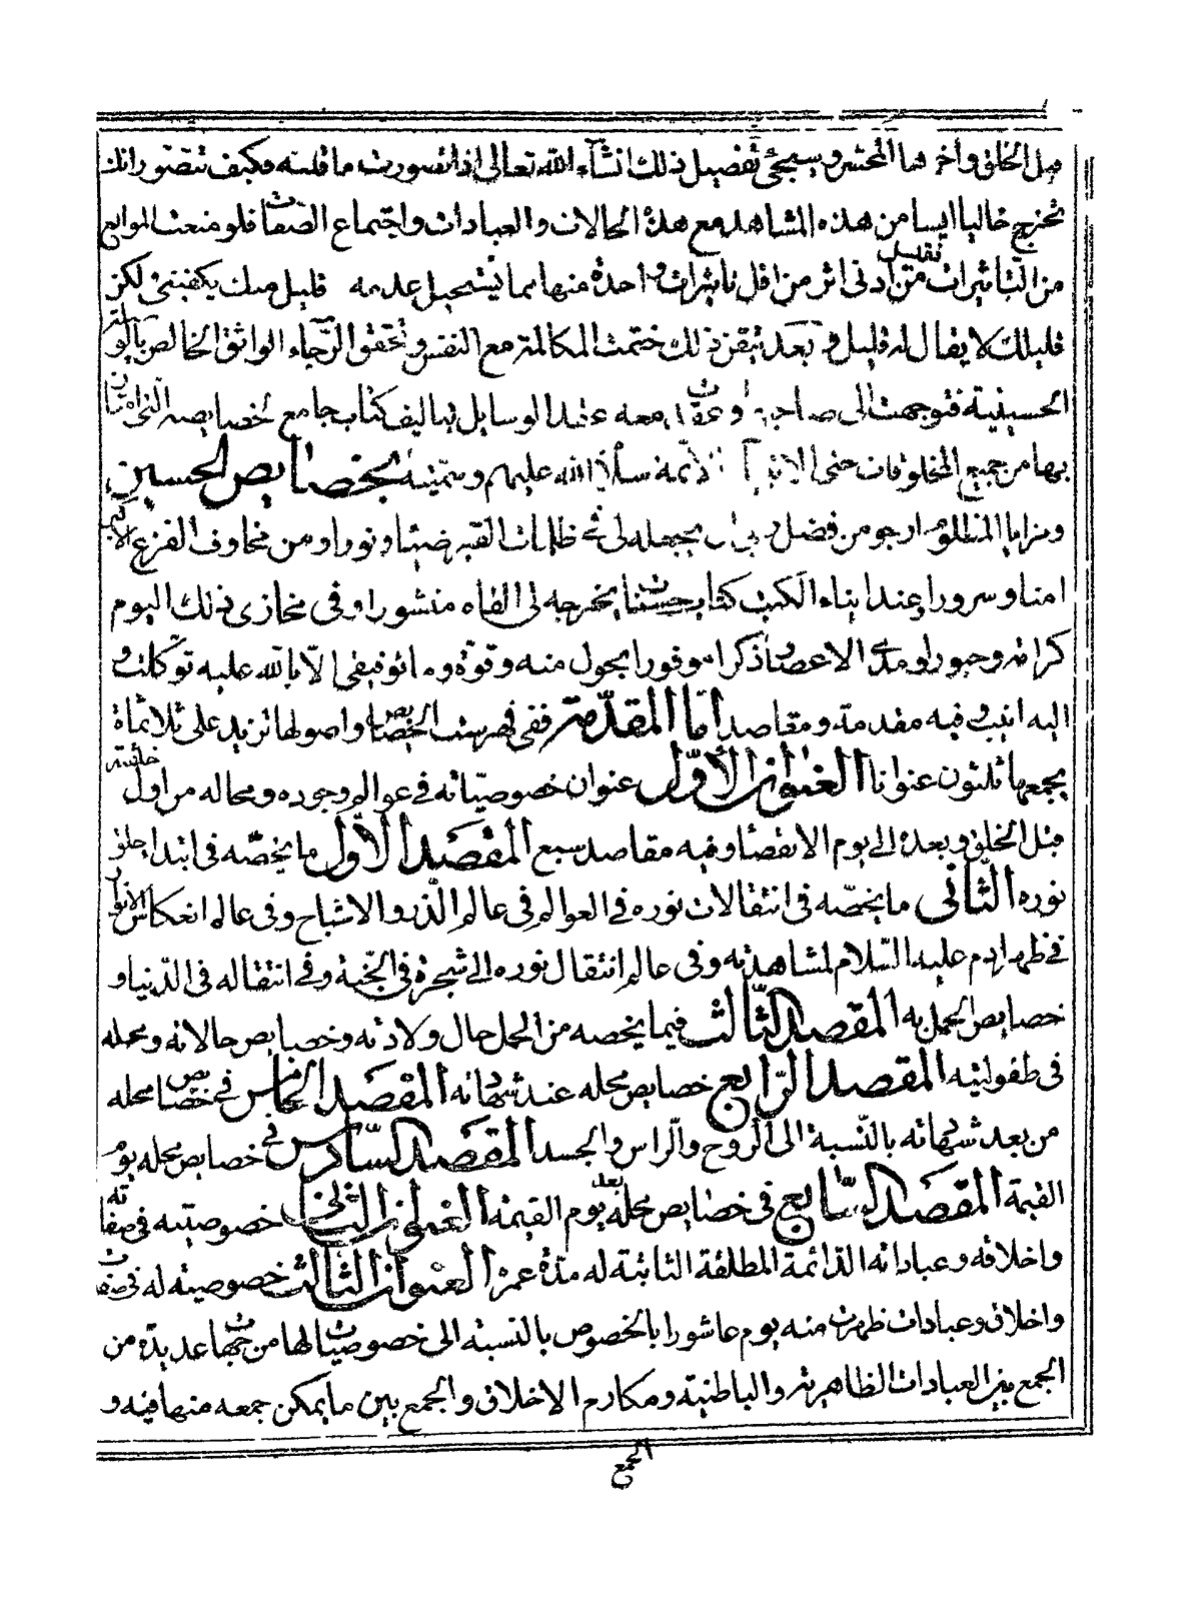 قبل الخلق وآخرها المحشر وسيجئ تفصيل ذلك انشآء الله تعالى اذا تصورت ما قلته فكيف تتصور انك
تخرج خاليا ايسا من هذه المشاهد مع هذه الحالات والعبادات واجتماع الصّفات فلو منعت الموانع
من التّأثيرات من ادنى اثر من اقل تأثيرات واحدة منها مما يستحيل عدمه قليل منك يكفينى لكن
قليلك لا يقال له قليل و بعد تيقن ذلك ختمت المكالمة مع النفس وتحقق الرّجاء الواثق الخالص بالوسائل
الحسينية فتوجهت الى صاحبها و معه عقد الوسايل بتاليف كتاب جامع لخصايصه التى امتاز
بها من جميع المخلوقات حتى الانبيآء الائمة سلام الله عليهم وسمّيته بخصايص الحسين
ومزايا المظلوم ارجو من فضل ربى ان يجعله لى فى ظلمات القبر ضيآء ونورا ومن مخاوف الفزع الاكبر
امنا وسرورا وعند ايتاء الكتب كتاب حسنات يخرجه لى القاه منشورا وفى مخازى ذلك اليوم
كرامة وحبورا ومدى الاعصار ذكرا موفورا بحول منه وقوّة وما توفيقى الّا بالله عليه توكلت و
اليه انيب وفيه مقدمة ومقاصد امّا المقدّمة ففى فهرست الخصايص واصولها تزيد على ثلاثمأة
يجمعها ثلثون عنوانا العنوان الأوّل عنوان خصوصيّاته فى عوالم وجوده ومحاله من اول خلقته
قبل الخلق وبعده الى يوم الانقضآء وفيه مقاصد سبع المقصد الأوّل ما يخصّه فى ابتداء خلق
نوره الثّانى ما يخصّه فى انتقالات نوره فى العوالم فى عالم الذّر والاشباح وفى عالم انعكاس الانوار
فى ظهر ادم عليه السّلام لمشاهدته وفى عالم انتقال نوره الى شجرة فى الجنّة وفى انتقاله فى الدّنيا و
خصايص الحمل به المقصد الثّالث فيما يخصه من الحمل حال ولادته وخصايص حالاته ومحله
فى طفوليته المقصد الرّابع خصايص محله عند شهادته المقصد الخامس فى خصايص محله
من بعد شهادته بالنّسبة الى الروح والرّاس والجسد المقصد السّادس فى خصايص محله يوم
القيمة المقصد السّابع فى خصايص محله بعد يوم القيمة العنوان الثانى خصوصيته فى صفاته
واخلاقه وعباداته الدّائمة المطلقة الثابتة له مدّة عمره العنوان الثالث خصوصيته له فى صفات
واخلاق وعبادات ظهرت منه يوم عاشورا بالخصوص بالنسبته الى خصوصيّات لها من جهات عديدة من
الجمع بين العبادات الظاهرية والباطنية ومكارم الاخلاق والجمع بين ما يمكن جمعه منها فيه و
الجمع